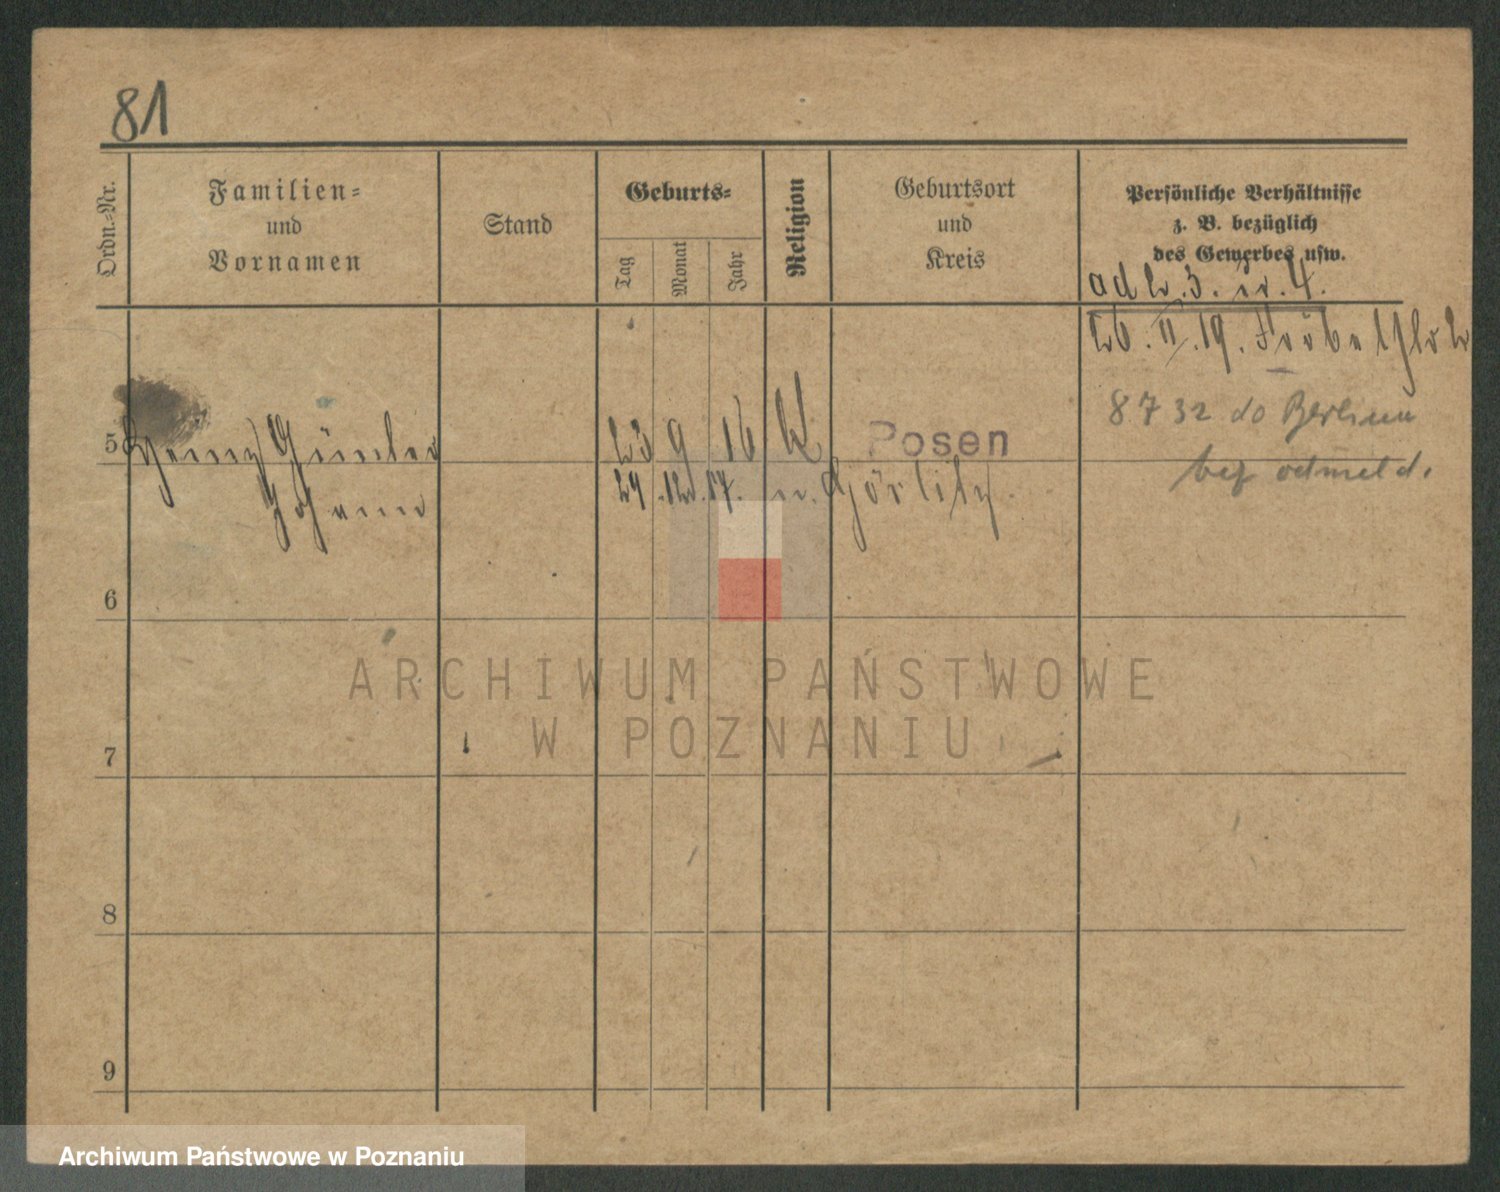 81
Ordn.-Nr.
Familien-
und
Vornamen
Stand
Geburts-
Tag
Monat
Jahr
Religion
Geburtsort
und
Kreis
Persönliche Verhältnisse
z. B. bezüglich
des Gewerbes usw.
ad 3. u. 4.
26. II. 19.
8732 do Berlina
odmeld.
5 Heinz Günter 23 9 16 K Posen
Johann 24.12.17. Görlitz.
6
7
8
9
ARCHIWUM PAŃSTWOWE
W POZNANIU
Archiwum Państwowe w Poznaniu